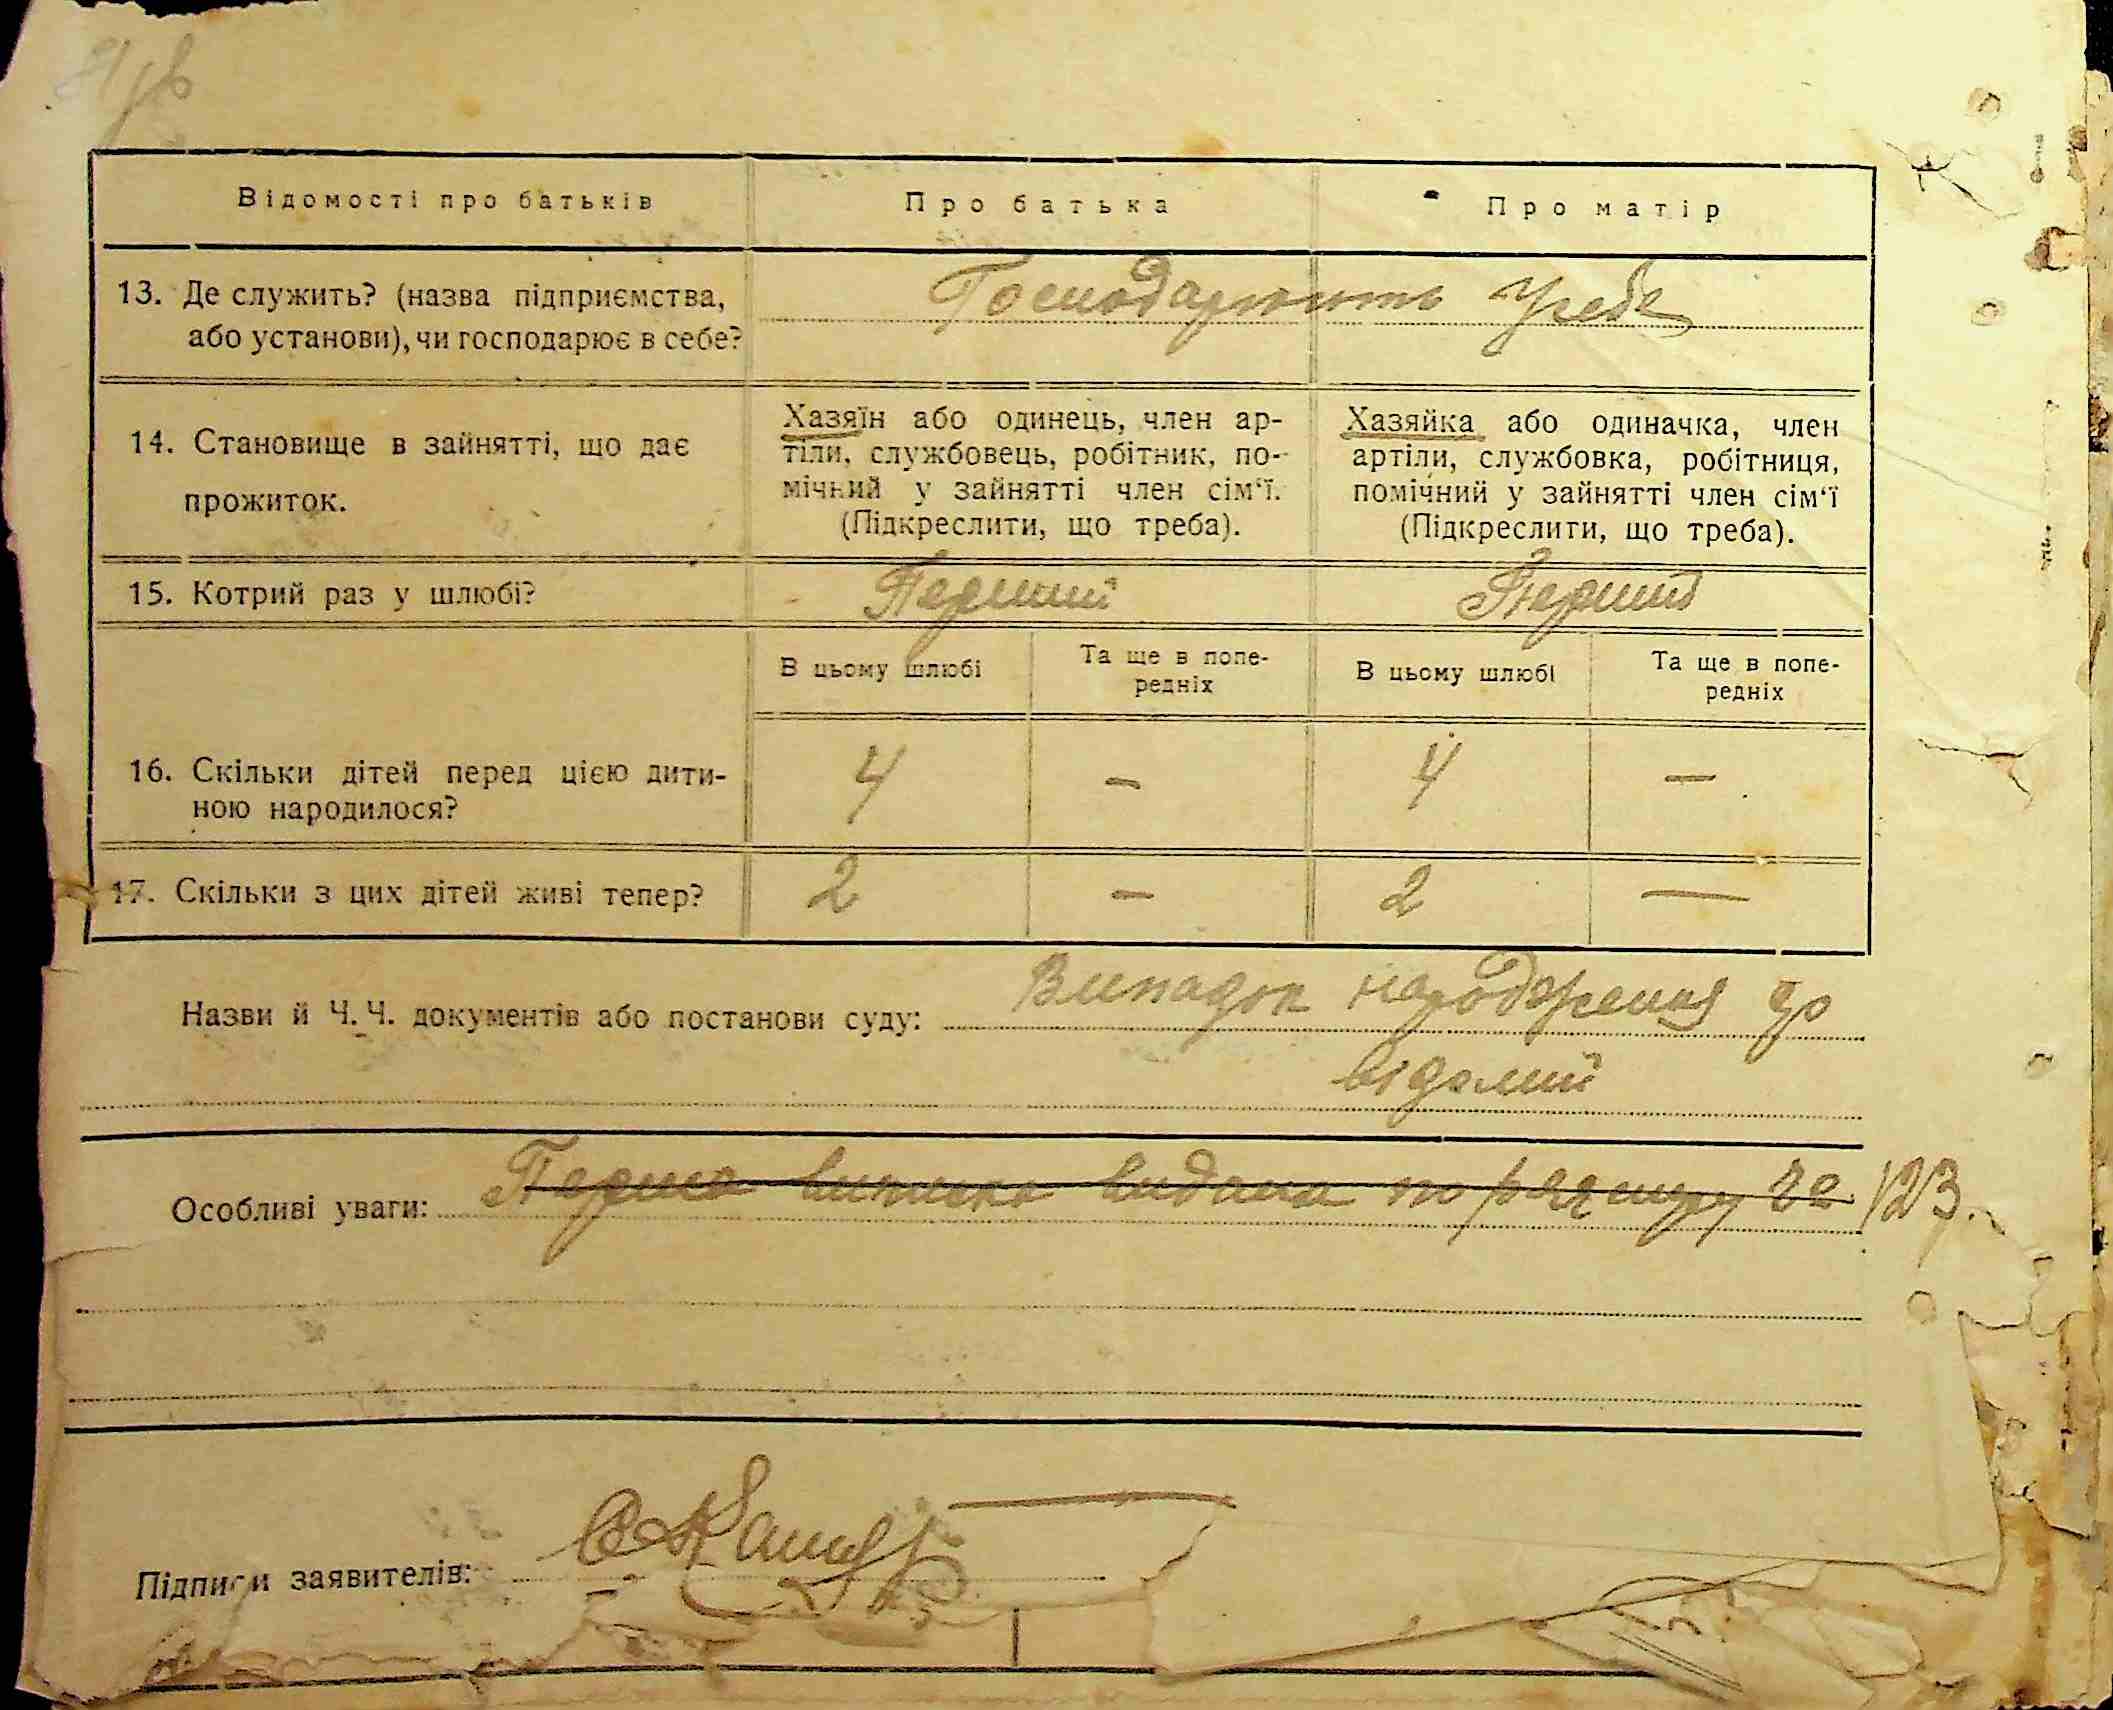 Відомості про батьків Про батька Про матір
13. Де служить? (назва підприємства, Господарюють у себе
або установи), чи господарює в себе?
14. Становище в зайнятті, що дає
прожиток.
Хазяїн або одинець, член ар-
тіли, службовець, робітник, по-
мічний у зайнятті член сім‘ї.
(Підкреслити, що треба).
Хазяйка або одиначка, член
артіли, службовка, робітниця,
помічний у зайнятті член сім‘ї
(Підкреслити, що треба).
15. Котрий раз у шлюбі? Перший Перший
В цьому шлюбі Та ще в попе-
редніх В цьому шлюбі Та ще в попе-
редніх
16. Скільки дітей перед цією дити- 4 — 4 —
ною народилося?
17. Скільки з цих дітей живі тепер? 2 — 2 —
Назви й Ч. Ч. документів або постанови суду: Випадок народження
відомий
Особливі уваги: Перша виписка видана 123.
Підписи заявителів: